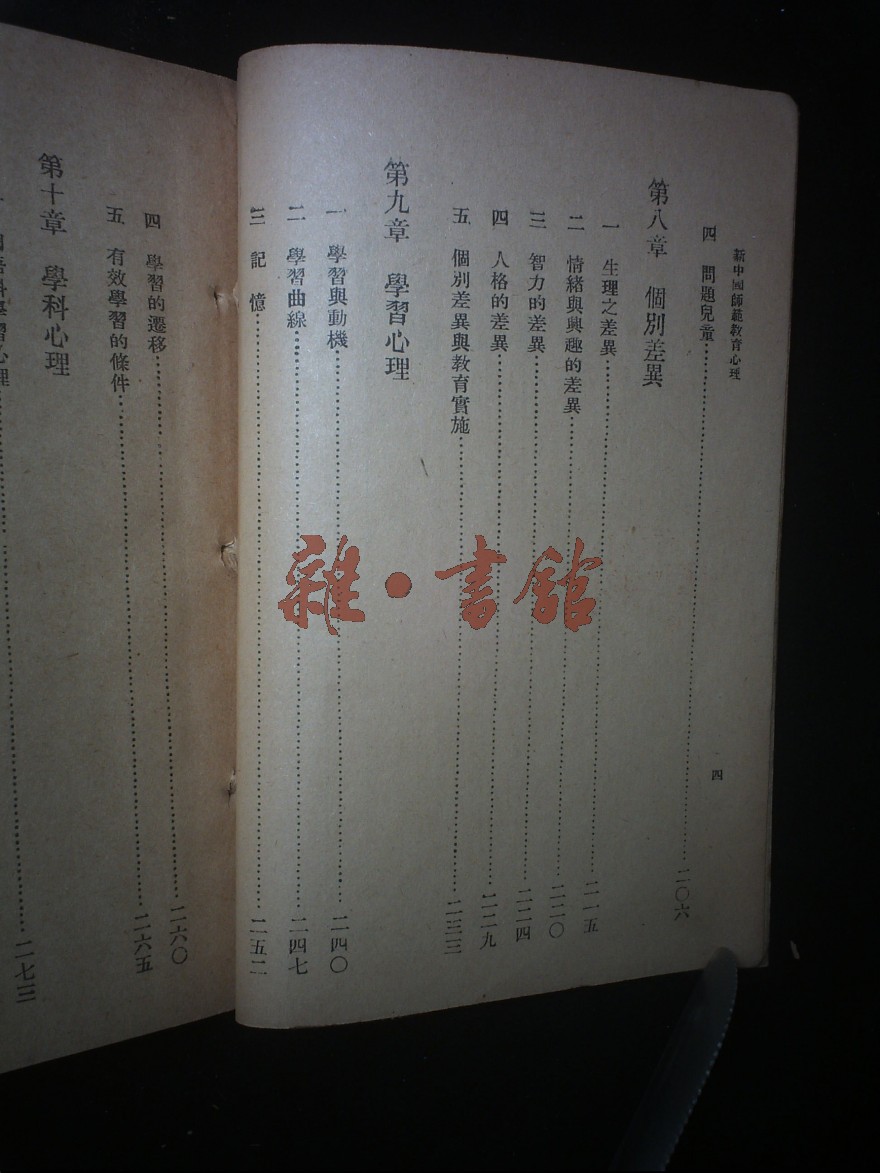 新中國師範教育心理
四
四 問題兒童 二〇六
第八章 個別差異
一 生理之差異 二一五
二 情緒與興趣的差異 二二〇
三 智力的差異 二二四
四 人格的差異 二二九
五 個別差異與教育實施 二三三
第九章 學習心理
一 學習與動機 二四〇
二 學習曲線 二四七
三 記憶 二五二
四 學習的遷移 二六〇
五 有效學習的條件 二六五
第十章 學科心理
科學習心理 二七三
雜·書館